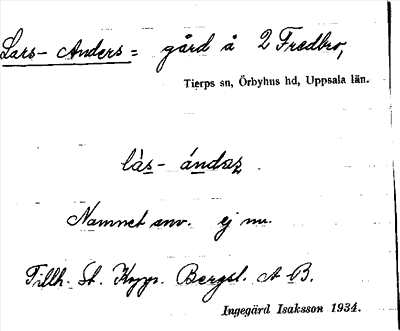 Lars-Anders= gård å 2 Fredbro,
Tierps sn, Örbyhus hd, Uppsala län.
làs- ándəʂ
Namnet anv. ej nu.
Tillh. St. Kopp. Bergsl. A B.
Ingegärd Isaksson 1934.